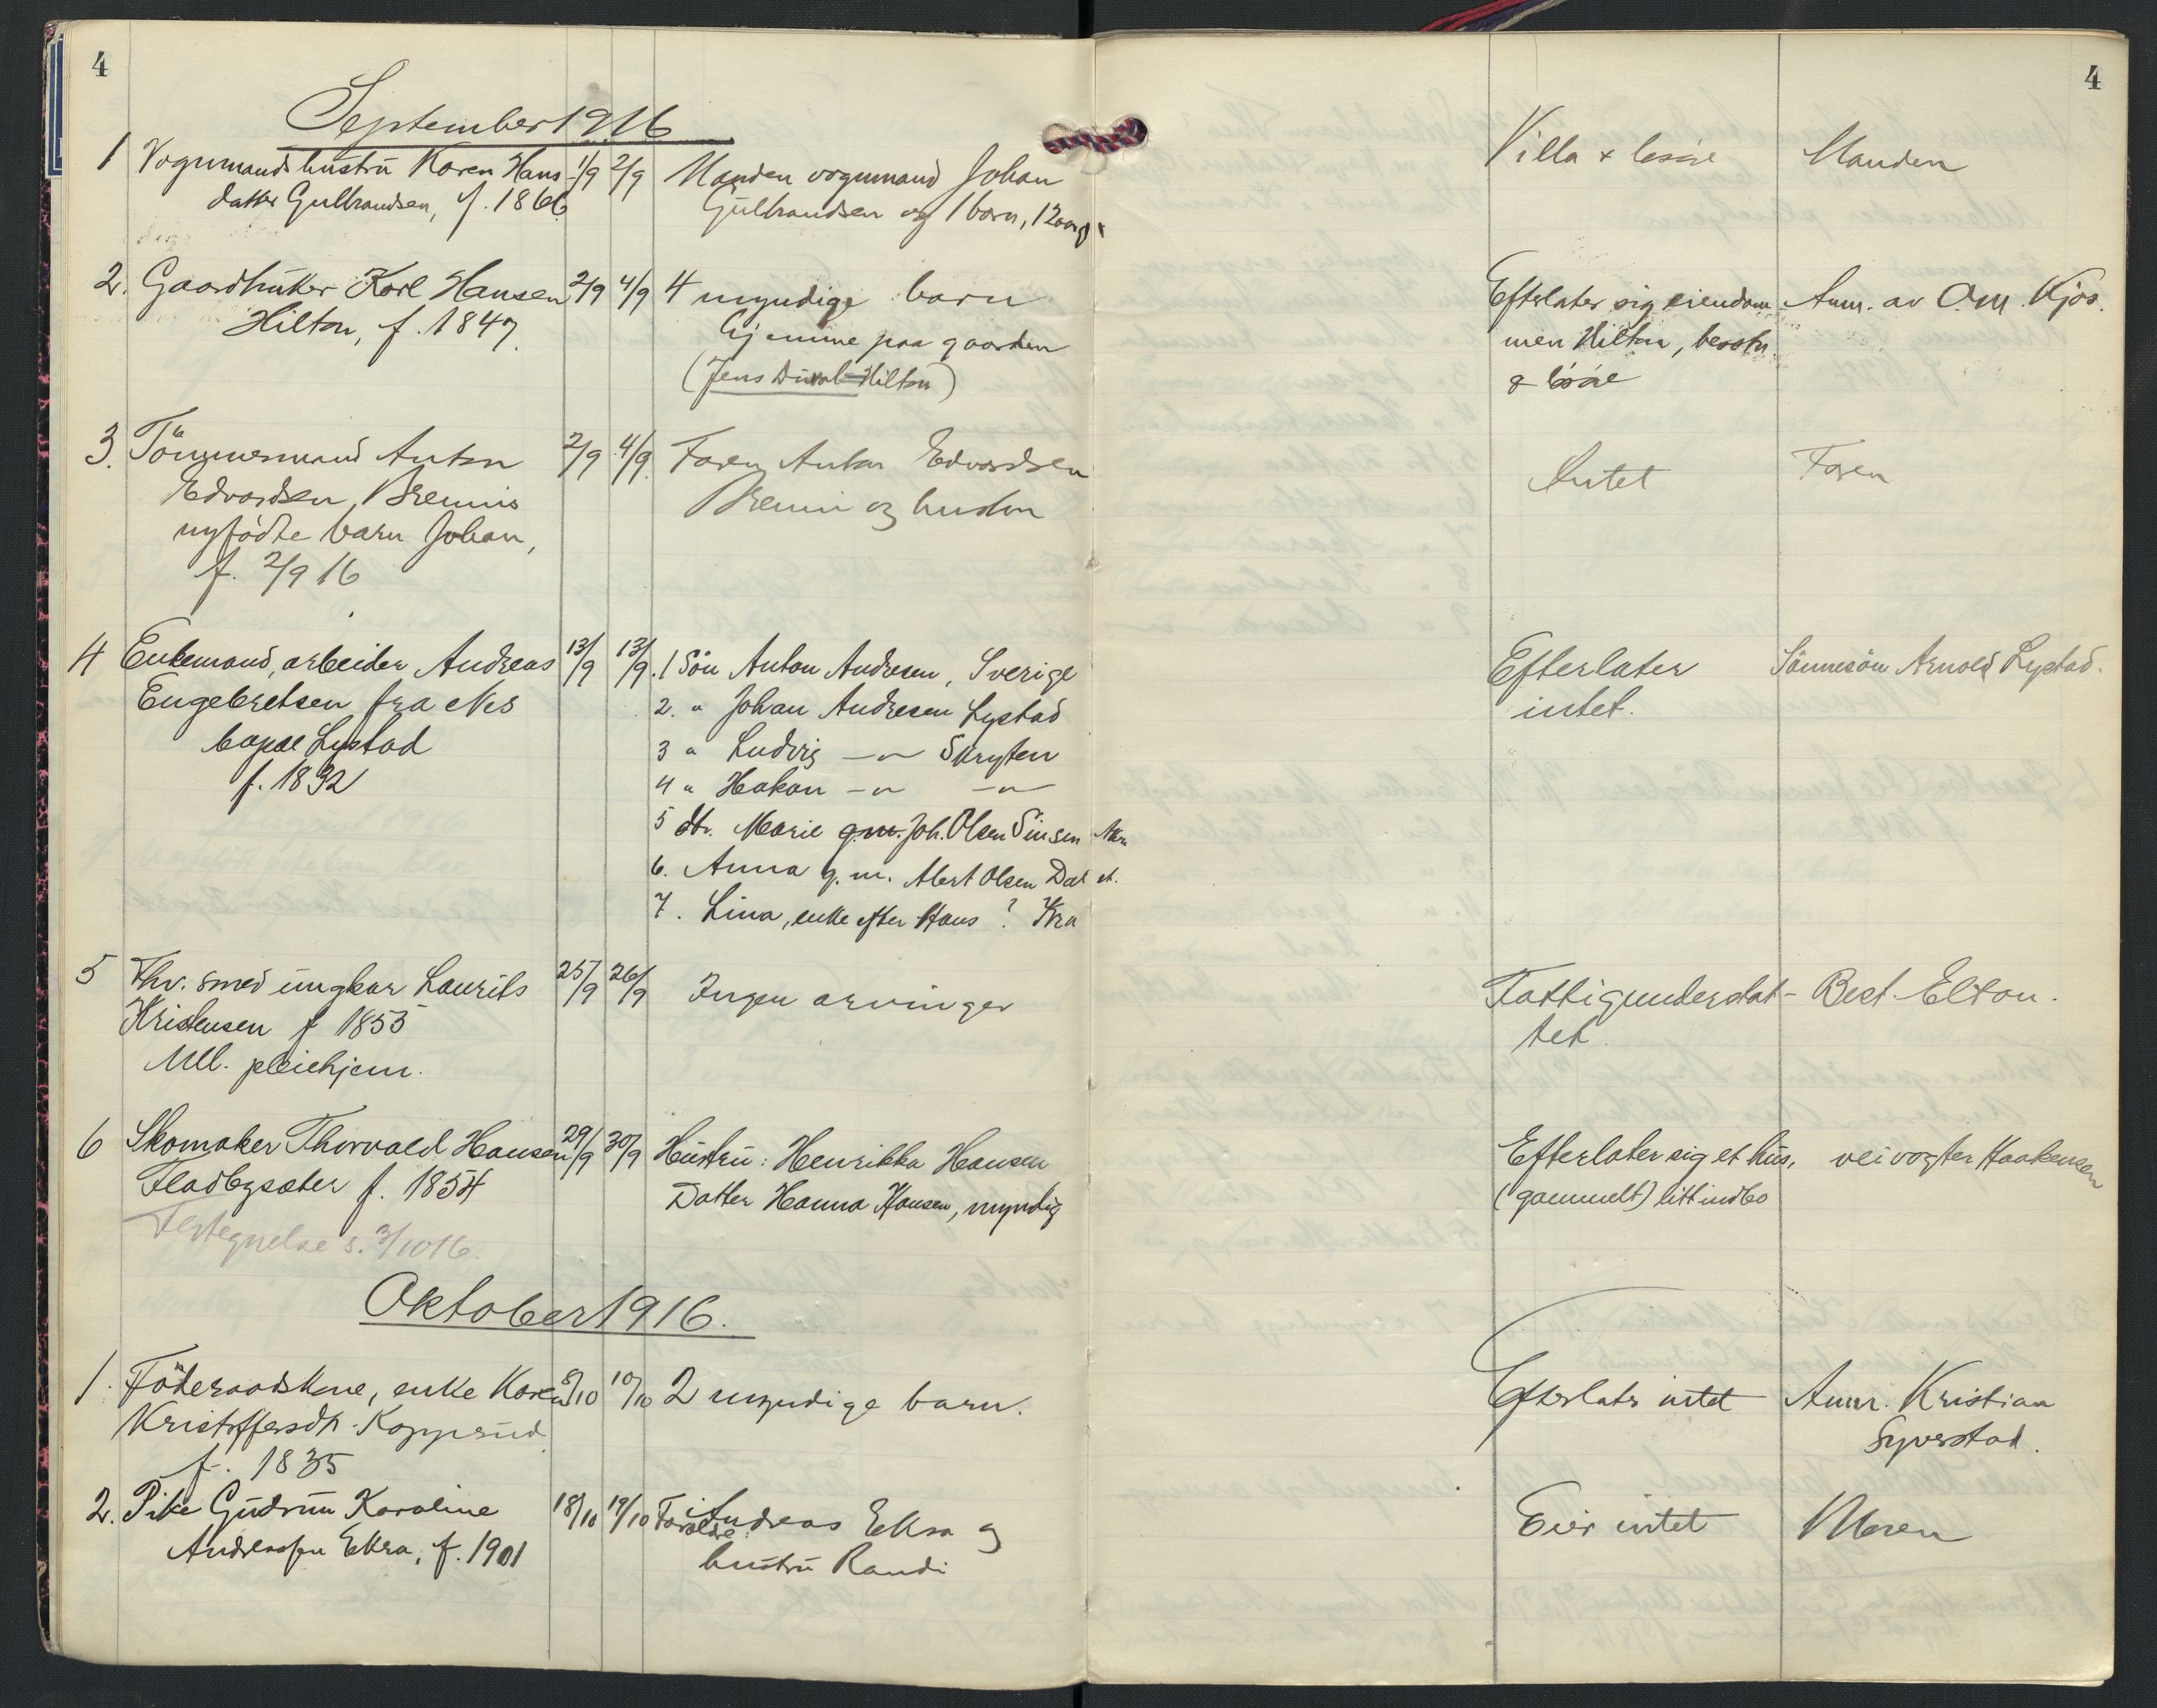 4
4
September 1916
1 Vognmandshustru Karen Hans- 1/9 2/9 Manden vognmand Johan Villa & løsøre Manden
datter Gulbrandsen, f. 1866 Gulbrandsen og 1 barn, 12 aar
2. Gaardbruker Karl Hansen 2/9 4/9 4 myndige barn Efterlater sig eiendom- Anm. av O. M. Kjos.
Hilton, f. 1847. hjemme paa gaarden men Hilton, besetn.
(Jens Duval-Hilton) & løsøre
3. Tömmermand Anton 2/9 4/9 Faren Anton Edvardsen Intet Faren
Edvardsen, Bremis Bremi og hustru
nyfödte barn Johan,
f. 2/9 16
4 Enkemand, arbeider Andreas 13/9 13/9 1 Sön Anton Andresen, Sverige Efterlater Sönnesön Arnold Lystad.
Engebretsen fra Nes 2. " Johan Andresen Lystad intet.
Lystad 3 " Ludvig —"— Skryten
f. 1832 4 " Hakon —"— —"—
5 dtr. Marie g.m. Joh. Olsen Sinsen Akr
6. Anna g. m. Albert Olsen Dal st.
7. Lina, enke efter Hans ? Kra
5 Fhv. smed ungkar Laurits 25/9 26/9 Ingen arvinger Fattigunderstöt- Best. Elton.
Kristensen f 1855 tet
Ull. pleiehjem.
6 Skomaker Thorvald Hansen 29/9 30/9 Hustru: Henrikka Hansen Efterlater sig et hus, veivogter Haakensen
Fladbysæter f. 1854 Datter Hanna Hansen, myndig (gammelt) litt indbo
Fortegnelse s. 3/10 16.
Oktober 1916.
1. Föderaadskone, enke Karen 8/10 10/10 2 myndige barn. Efterlater intet Anm. Kristian
Kristoffersdtr. Kopperud Syverstad.
f. 1835
2. Pike Gudrun Karoline 18/10 19/10 Forældre: Andreas Ekra og Eier intet Moren
Andreassen Ekra, f. 1901 hustru Randi